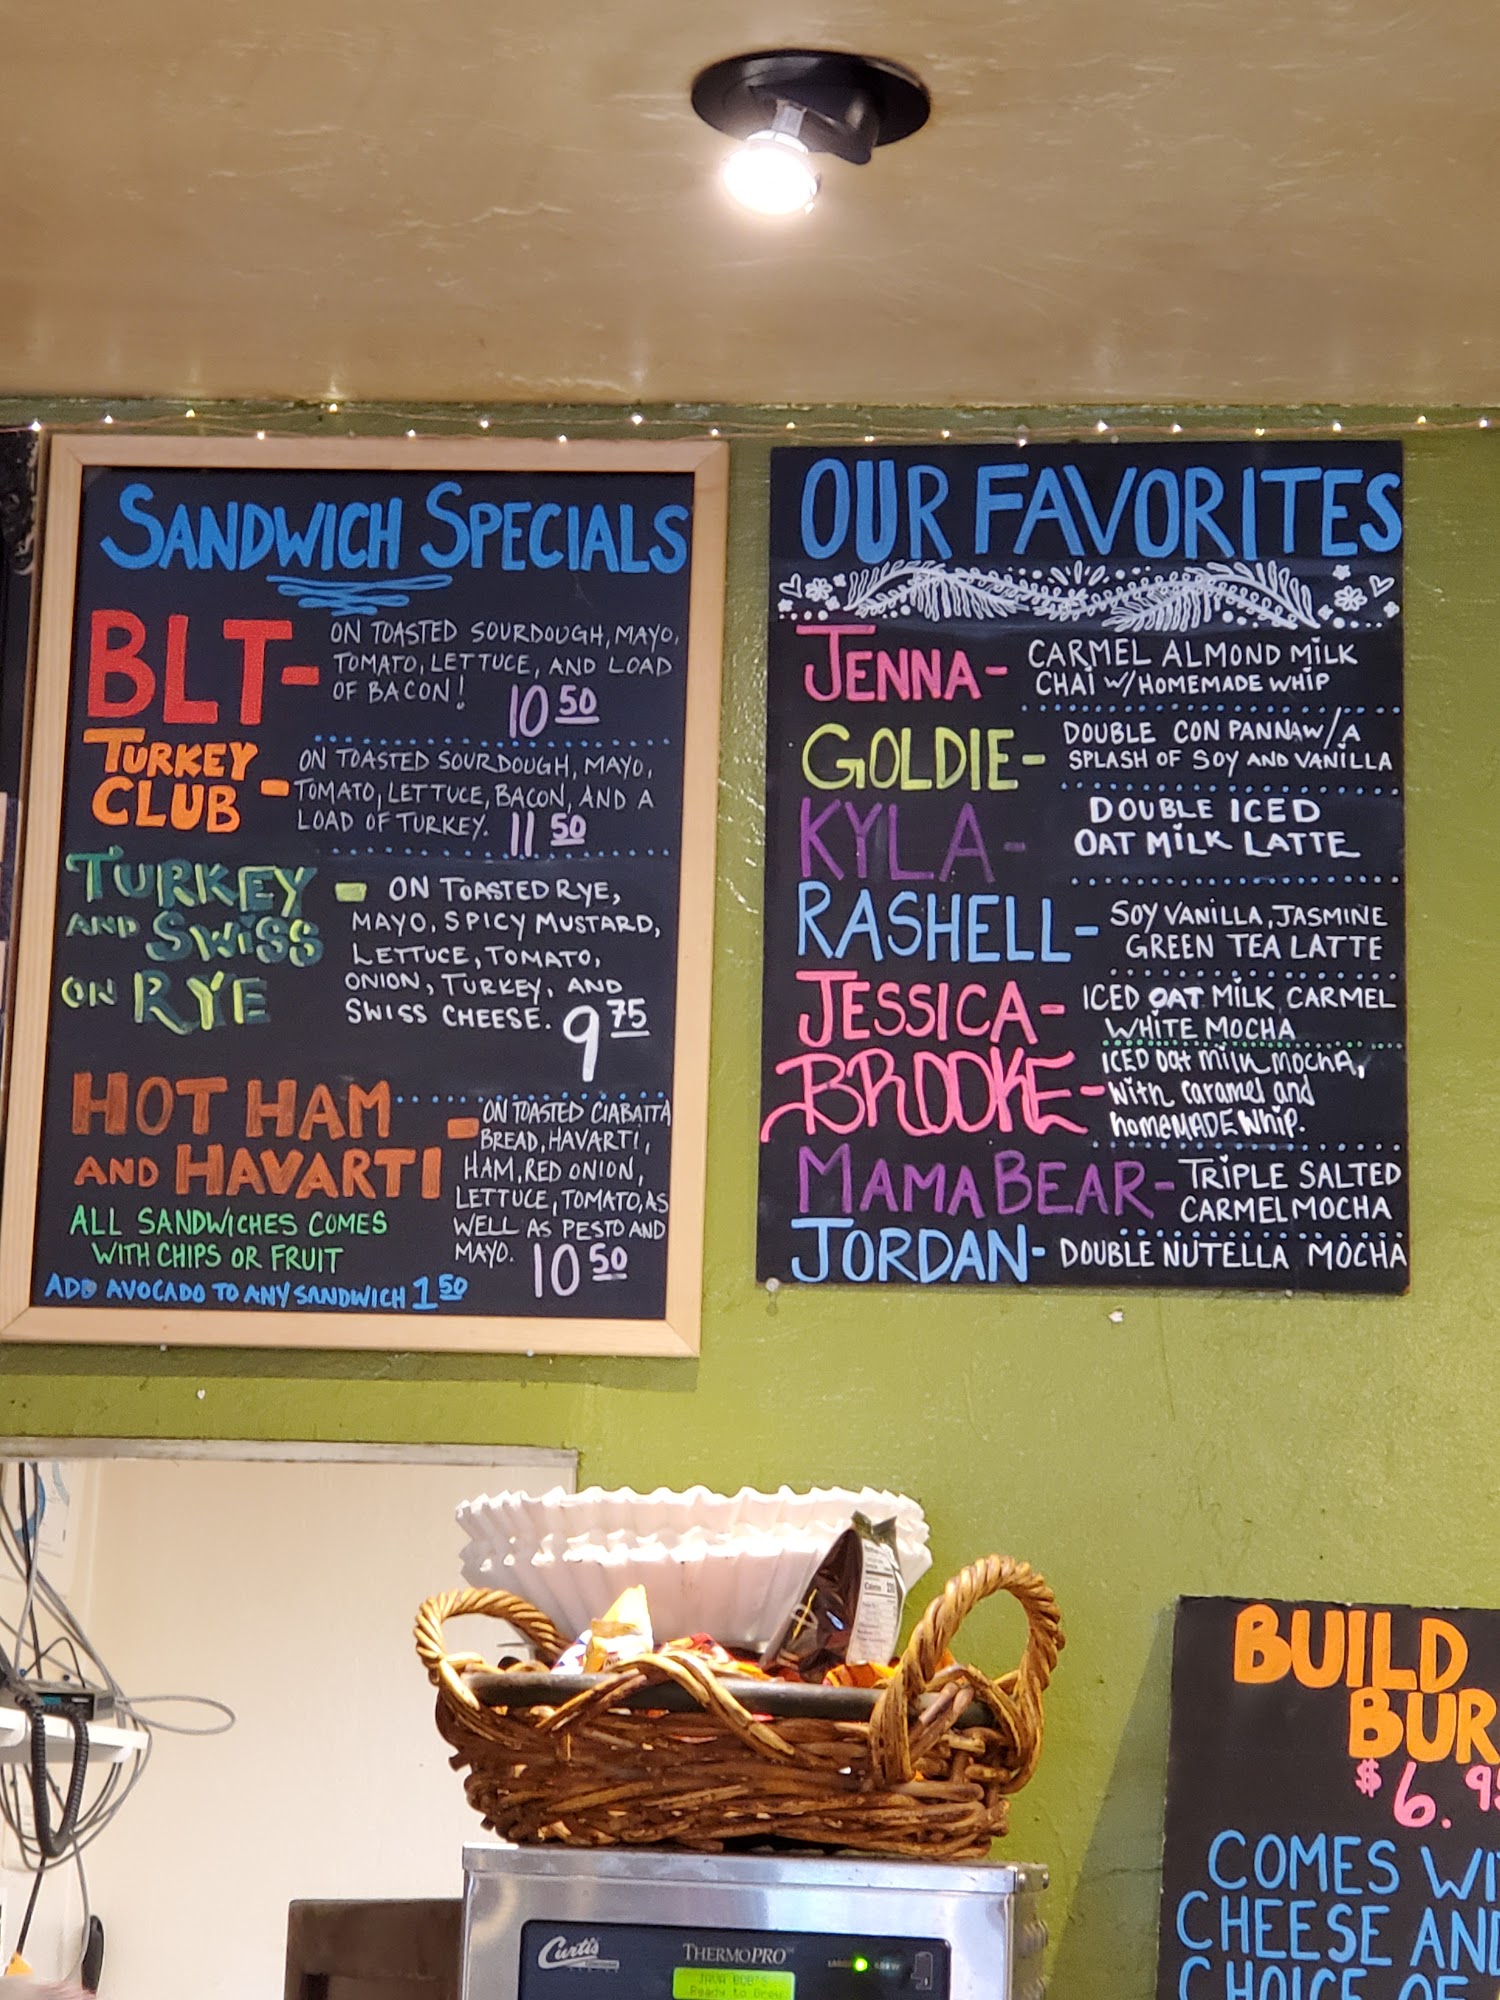 SANDWICH SPECIALS
BLT- ON TOASTED SOURDOUGH, MAYO,
TOMATO, LETTUCE, AND LOAD
OF BACON! 10 50
TURKEY
CLUB - ON TOASTED SOURDOUGH, MAYO,
TOMATO, LETTUCE, BACON, AND A
LOAD OF TURKEY. 11 50
TURKEY
AND SWISS
ON RYE
- ON TOASTED RYE,
MAYO, SPICY MUSTARD,
LETTUCE, TOMATO,
ONION, TURKEY, AND
SWISS CHEESE. 9 75
HOT HAM
AND HAVARTI
- ON TOASTED CIABATTA
BREAD, HAVARTI,
HAM, RED ONION,
LETTUCE, TOMATO, AS
WELL AS PESTO AND
MAYO. 10 50
ALL SANDWICHES COMES
WITH CHIPS OR FRUIT
ADD AVOCADO TO ANY SANDWICH 1 50
OUR FAVORITES
JENNA- CARMEL ALMOND MILK
CHAI W/HOMEMADE WHIP
GOLDIE- DOUBLE CON PANNA W/A
SPLASH OF SOY AND VANILLA
KYLA- DOUBLE ICED
OAT MILK LATTE
RASHELL- SOY VANILLA, JASMINE
GREEN TEA LATTE
JESSICA- ICED OAT MILK CARMEL
WHITE MOCHA
BROOKE- ICED oat milk mocha,
with caramel and
homeMADE whip.
MAMA BEAR- TRIPLE SALTED
CARMEL MOCHA
JORDAN- DOUBLE NUTELLA MOCHA
BUILD
BUR
$6.95
COMES WI
CHEESE AND
CHOICE OF
Curtis
THERMOPRO
JAVA BOB'S
Ready to Brew